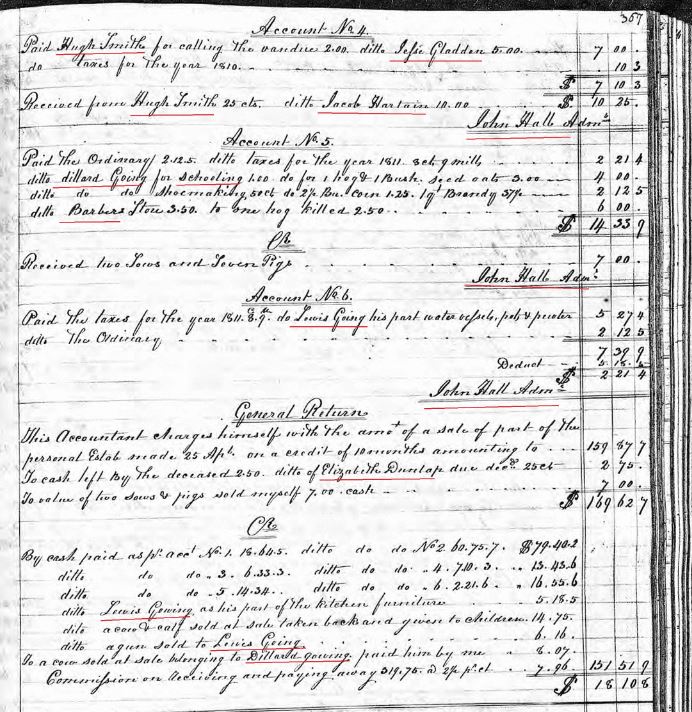 367
Account No 4.
Paid Hugh Smith for calling the vandue 2.00. ditto Jesse Gladden 5.00. 7 00.
do taxes for the year 1810. 10 3
$ 7 10 3
Received from Hugh Smith 25 cts. ditto Jacob Hartain 10.00 $ 10 25.
John Hall Admr
Account No. 5.
Paid The Ordinary 2.12.5. ditto taxes for the year 1811. 8cts 9 mills 2 21 4
ditto dillard Going for schooling 1.00 do for 1 hog & 1 Bush. seed oats 3.00 4 00.
ditto do do Shoemaking 50ct do 2½ Bu. Corn 1.25. 1qt Brandy 37½ 2 12 5
ditto Barbers Stow 3.50. to one hog killed 2.50. 6 00
$ 14 33 9
Cr.
Received two Sows and Seven Pigs 7 00.
John Hall Admr
Account No. 6.
Paid The taxes for the year 1811. 8.9. do Lewis Going his part water vessels, pots & pewter 5 27 4
ditto The Ordinary 2 12 5
7 39 9
Deduct 5 18 5
$ 2 21 4
John Hall Admr
General Return
This Accountant charges himself with the amot of a sale of part of the
personal Estab made 25 Apl. on a credit of 10 months amounting to 159 87 7
To cash left By the deceased 2.50. ditto of Elizabith Dunlap due decd 25ct 2 75.
To value of two sows & pigs sold myself 7.00. cash 7 00.
$ 169 62 7
Cr.
By cash paid as pr acct No. 1. 18.64.5. ditto do do No 2. 60.75.7. $79.40.2
ditto do do " 3. 6.33.3. ditto do do " 4. 7.10.3. " 13.43.6
ditto do do " 5. 14.34. ditto do do " 6. 2.21.6. " 16.55.6
ditto Lewis Gowing as his part of the kitchen furniture 5.18.5
dito a cow & calf sold at sale taken back and given to children. 14.75.
ditto a gun sold to Lewis Going 6.16.
To a cow sold at sale belonging to Dillard gowing paid him by me " 8.07.
Commission on Receiving and paying away 319.75. @ 2½ pr ct. 7.96. 151 51 9
$ 18 10 8